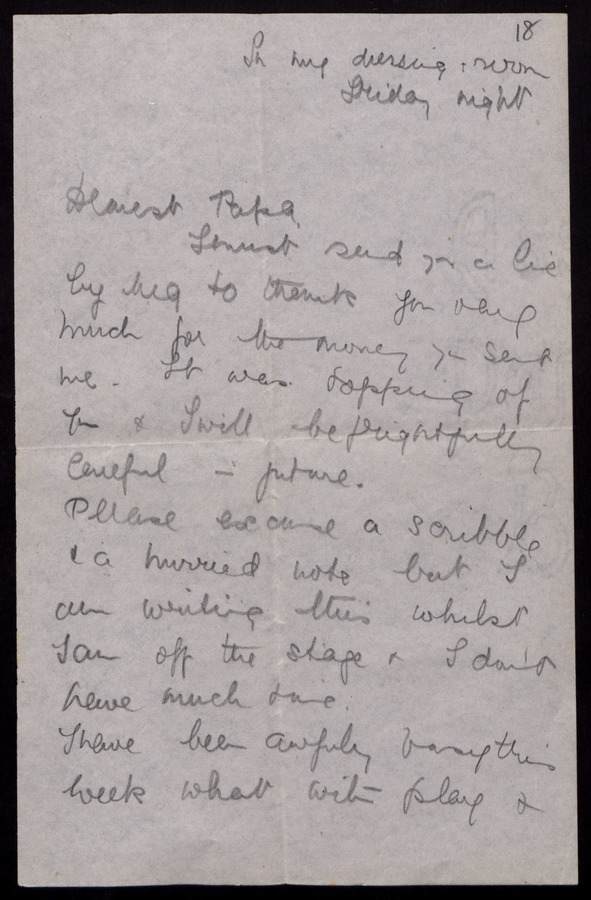 18
In my dressing-room
Friday night
Dearest Papa
I must send you a line
by Meg to thank you very
much for the money you sent
me. It was topping of
you & I will be frightfully
careful in future.
Please excuse a scribble
& a hurried note but I
am writing this whilst
I am off the stage & I don't
have much time.
I have been awfully busy this
week what with play &